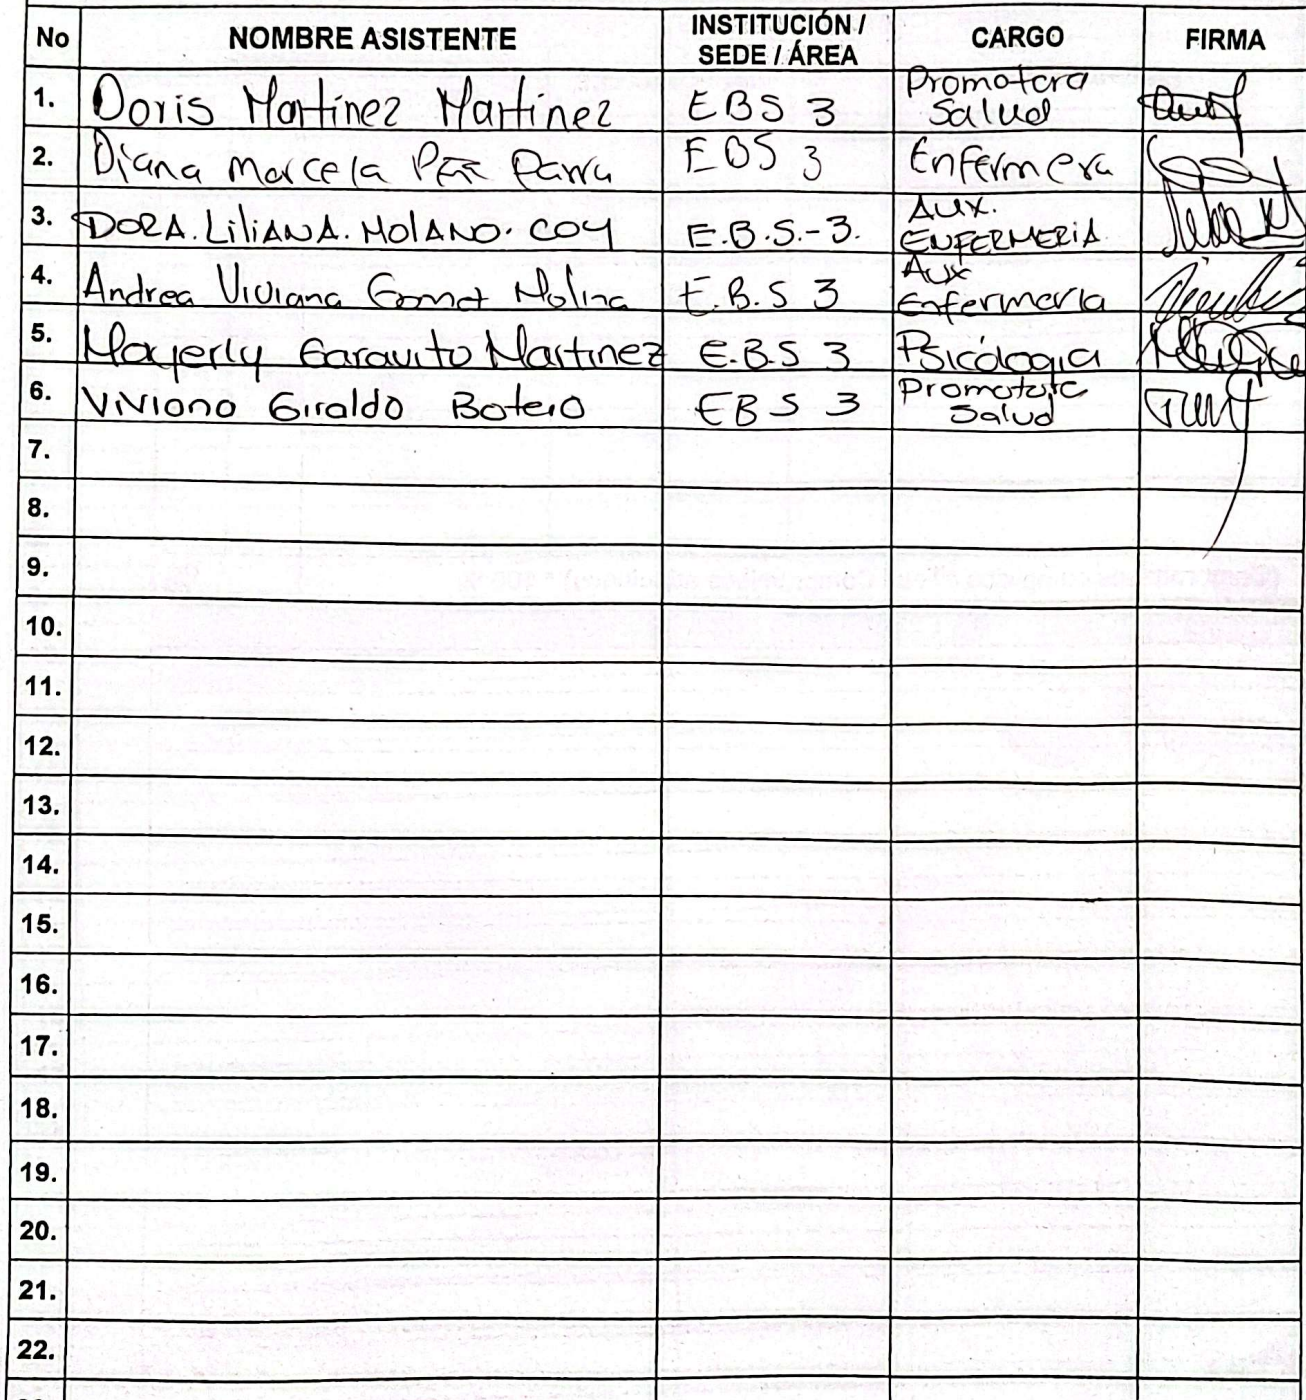 No NOMBRE ASISTENTE INSTITUCIÓN / SEDE / ÁREA CARGO FIRMA
1. Doris Martinez Martinez EBS 3 Promotora Salud
2. Diana Marcela Parra EBS 3 Enfermera
3. DORA. LiliANA. MolANO. COY E.B.S.-3. AUX. ENFERMERIA.
4. Andrea Viviana Molina E.B.S 3 Aux Enfermeria
5. Mayerly Garavito Martinez E.B.S 3 Psicólogia
6. Viviana Giraldo Botero EBS 3 Promotora Salud
7.
8.
9.
10.
11.
12.
13.
14.
15.
16.
17.
18.
19.
20.
21.
22.